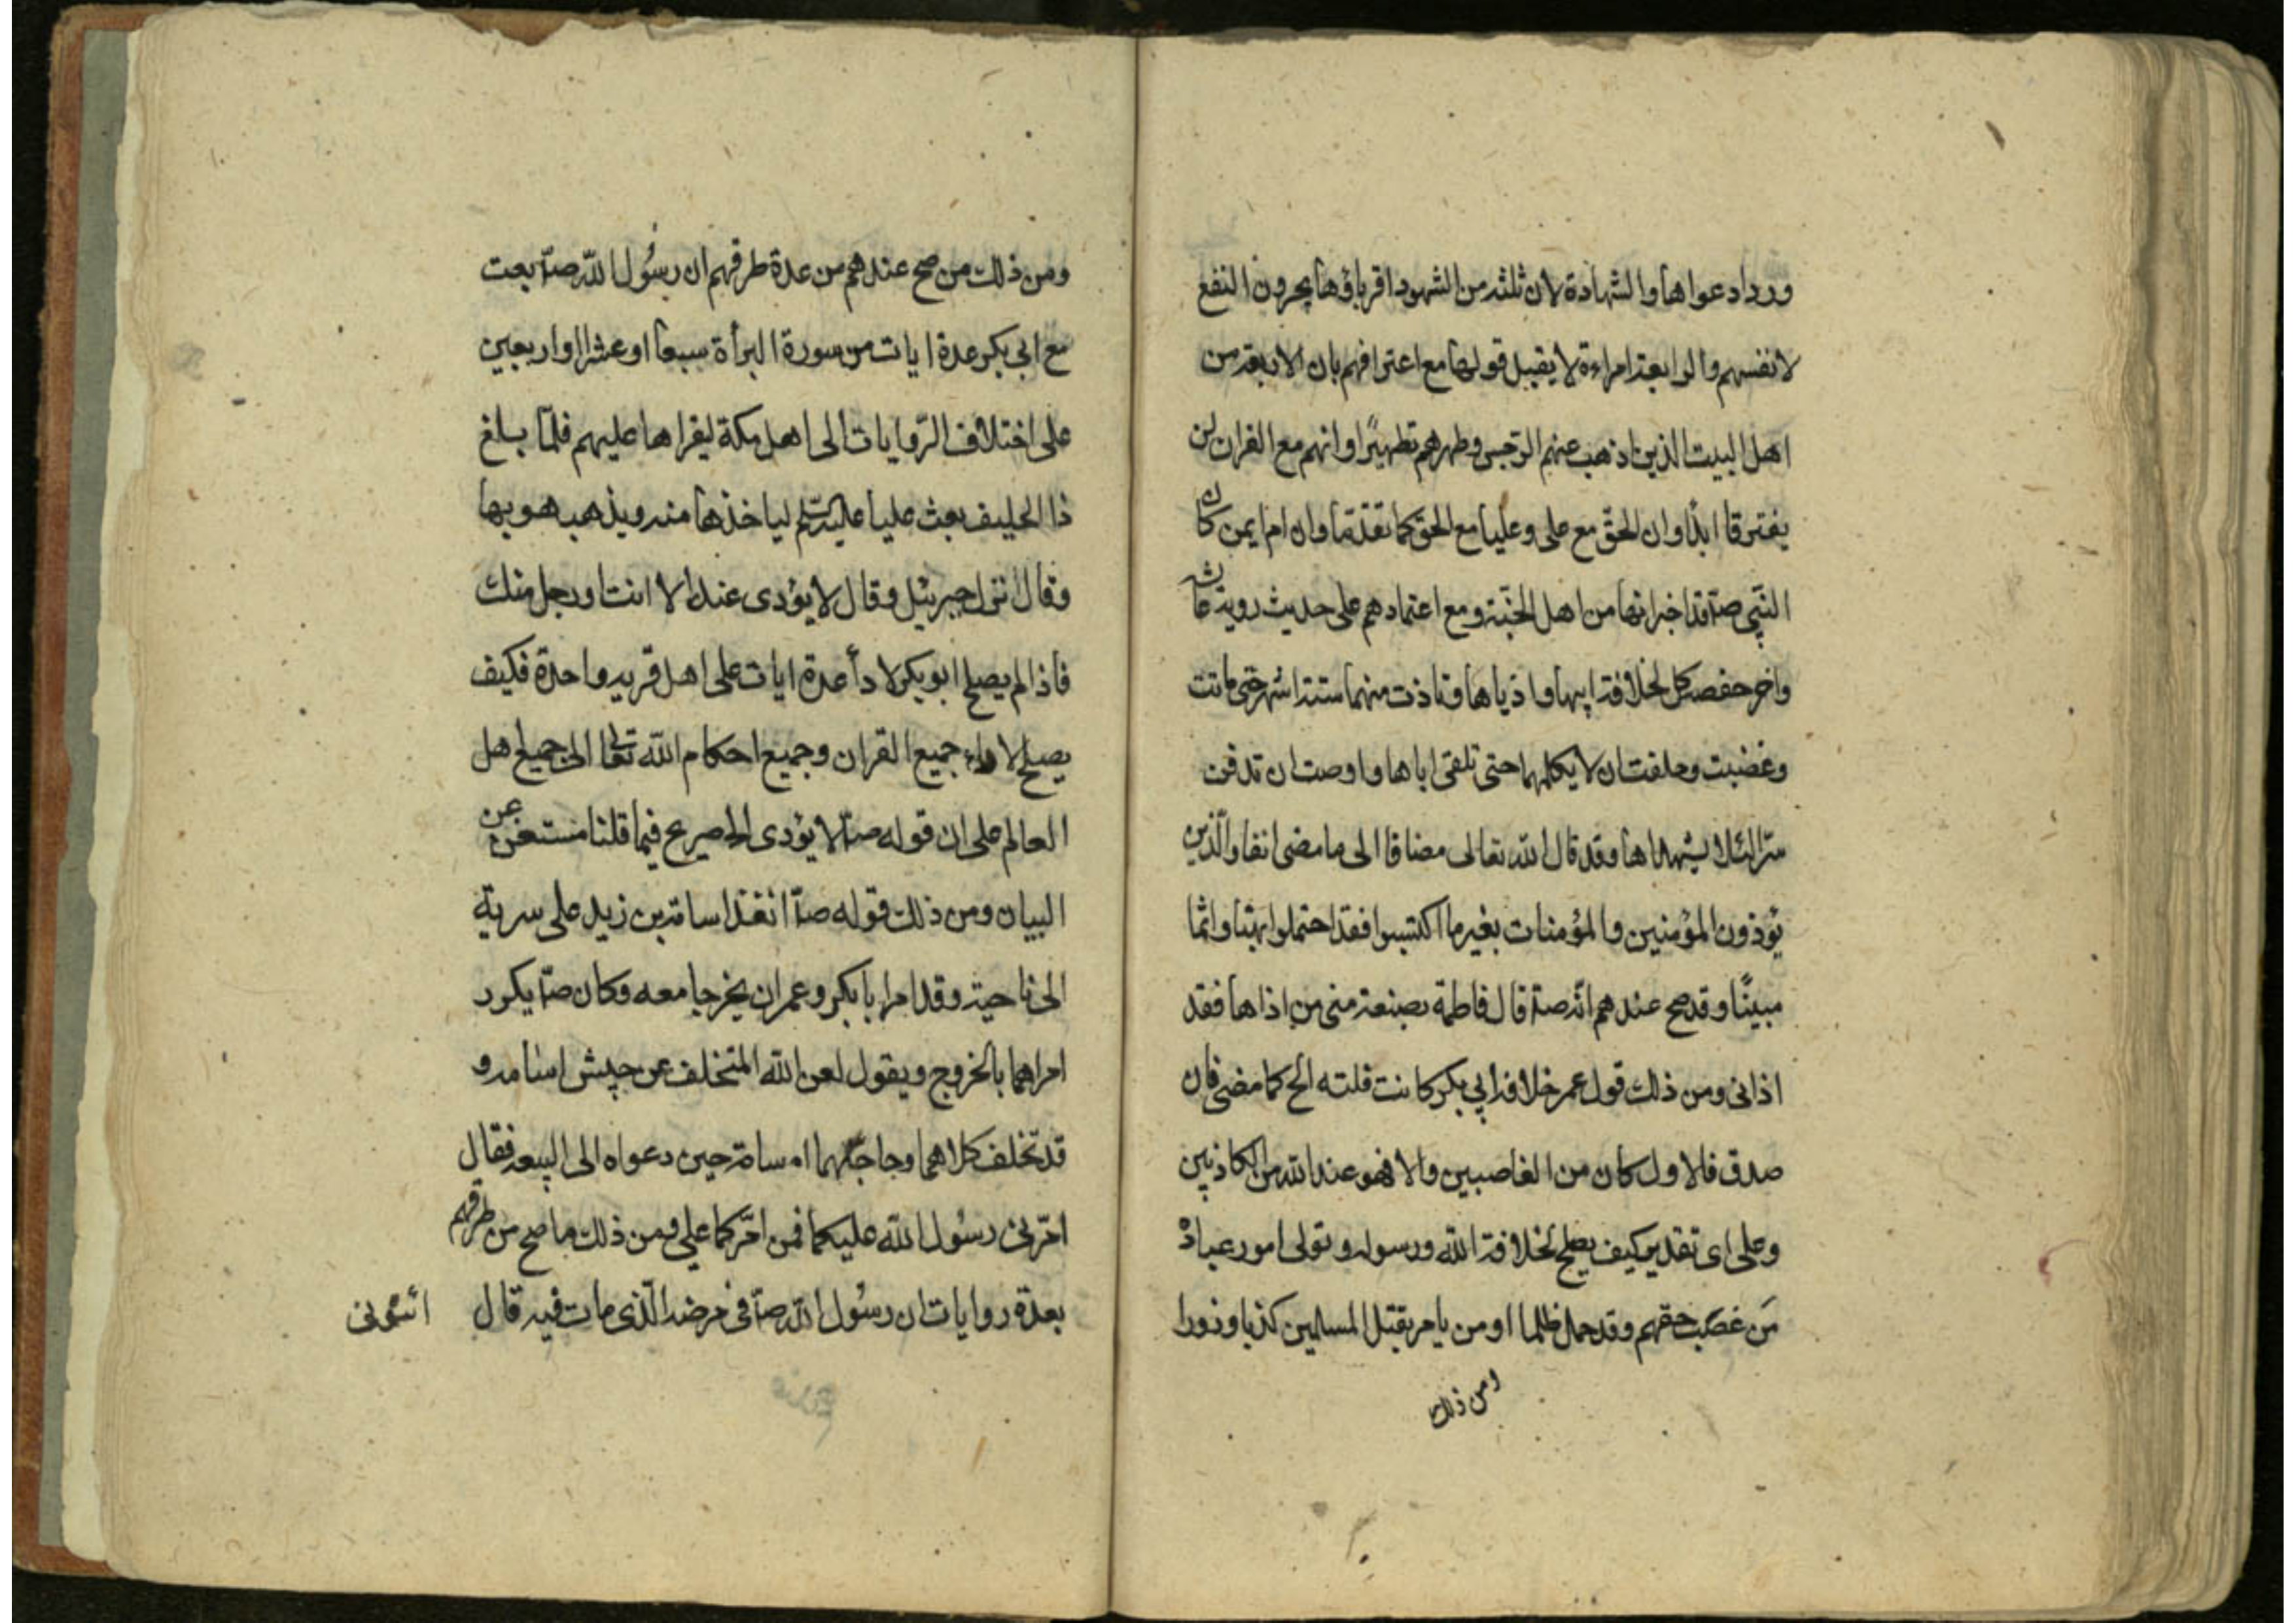 ورد ادعواها والشهادة لان ثلثه من الشهود اقرباؤها يجرون النفع
لانفسهم والرابعة امراءة لا يقبل قولها مع اعترافهم بان الاربعة من
اهل البيت الذين اذهب عنهم الرجس وطهرهم تطهيرًا وانهم مع القران لن
يفترقا ابدًا وان الحقّ مع على وعليا مع الحق كما تقدّم وان ام ايمن كان
النّبي صلّا قد اخبر انها من اهل الجنّة ومع اعتمادهم على حديث روية عاش
واخر حفصه كل لخلافة ابيها واذياها وتاذت منهما ستة اشهر حتى ماتت
وغضبت وحلفت ان لا يكلمهما حتى تلقى اباها واوصت ان تدفن
سرّا لئلا يشهداها وقد قال الله تعالى مضافا الى ما مضى انفا والّذين
يؤذون المؤمنين والمؤمنات بغير ما اكتسبوا فقد احتملوا بهتانا واثما
مبينًا وقد صح عندهم انّه صلّا قال فاطمة بضعة منى من اذاها فقد
اذانى ومن ذلك قول عمر خلافة ابي بكر كانت فلته الخ كما مضى فان
صدق فالاول كان من الغاصبين والا فهو عند الله من الكاذبين
وعلى اى تقدير كيف يصلح لخلافة الله ورسوله وتولى امور عباده
مَن غصب حقهم وقد حمل ظلما او من يامر بقتل المسلمين كذبا وزورا
ومن ذلك
ومن ذلك من صح عندهم من عدة طرقهم ان رسُول اللّه صلّا بعث
مع ابى بكر عدة ايات من سورة البرأة سبعا او عشرا او اربعين
على اختلاف الرّوايات الى اهل مكة ليقراها عليهم فلمّا بلغ
ذا الحليفه بعث عليا عليه السّلم لياخذها منه ويذهب هو بها
وقال نزل جبرئيل وقال لا يؤدى عنك الا انت او رجل منك
فاذا لم يصلح ابو بكر لادأ عدة ايات على اهل قريه واحدة فكيف
يصلح لاداء جميع القران وجميع احكام اللّه تعالى الى جميع اهل
العالم على ان قوله صلّا لا يؤدى الخ صريح فيما قلنا مستغن عن
البيان ومن ذلك قوله صلّا انفذ اسامة بن زيد على سرية
الى ناحية وقد امر ابا بكر وعمر ان يخرجا معه وكان صلّا يكرر
امراهما بالخروج ويقول لعن اللّه المتخلف عن جيش اسامه و
قد تخلف كلاهما وحاجّهما اسامة حين دعواه الى البيعه فقال
امّرنى رسُول اللّه عليكما فمن امّركما علي ومن ذلك ما صح من طرقهم
بعدّة روايات ان رسُول اللّه صلّا فى مرضه الّذى مات فيه قال
ائتونى